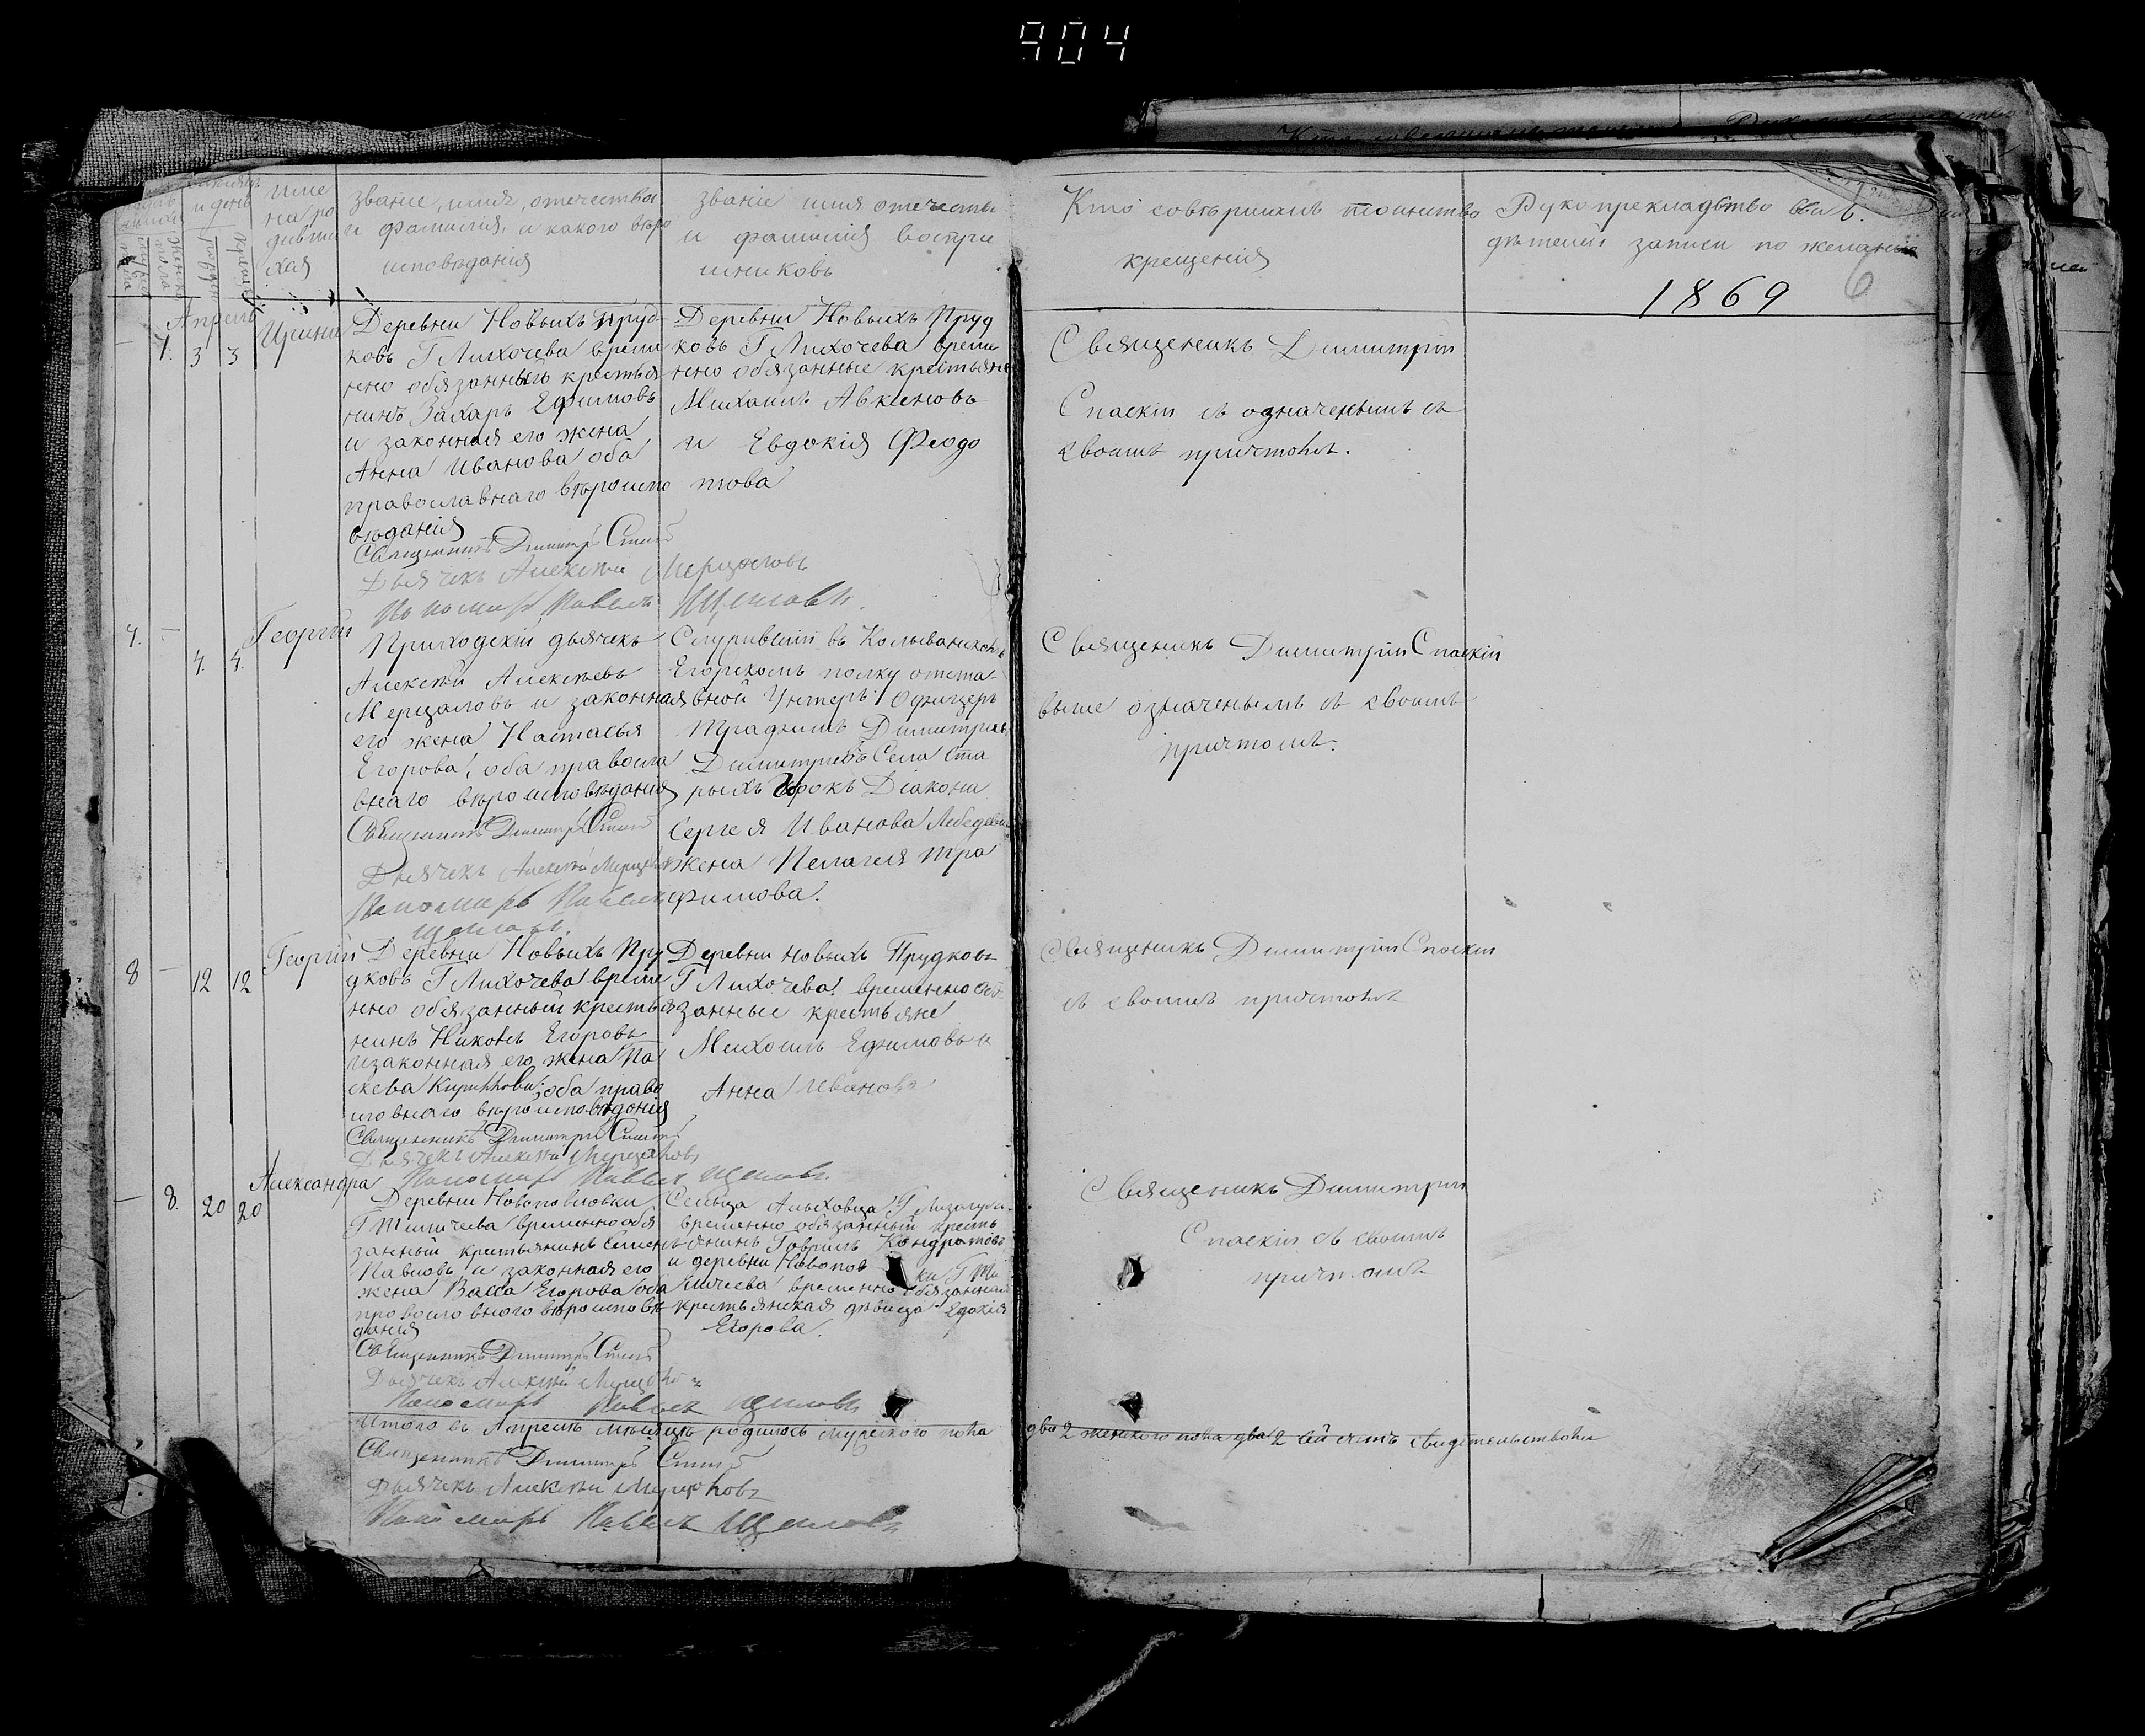 904
имя
и день
имe
на ро
дивши
хся
званіе, имя, отечество
и фамилія, и какого вѣро
исповѣданія
званіе имя отечество
и фамилія воспри
мниковъ
Кто совѣршилъ тоинство
крещенія
Рукоприкладство
дѣтелей записи по желанію
1869
6
Апрель
— 7. 3 3
Ирина
Деревни Новыхъ Пруд
ковъ Г Лихочева време
нно обязанный крестья
нинъ Захаръ Ефимовъ
и законная его жена
Анна Иванова оба
православнаго вѣроиспо
вѣданія
Священникъ Димитрій
Дьячекъ Алексѣй Мерцаловъ
Пономарь Павелъ Щегловъ
Деревни Новыхъ Пруд
ковъ Г Лихочева време
нно обязанные крестьяне
Михаилъ Авксновъ
и Евдокія Феодо
това
Священикъ Димитрій
Спаскій съ означенымъ съ
своимъ причтомъ.
7. — 4. 4.
Георгій
Приходскій дьячекъ
Алексѣй Алексѣевъ
Мерцаловъ и законная
его жена Настасья
Егорова, оба правосла
внаго вѣроисповѣданія
Священникъ Димитрій
Дьячекъ Алексѣй Мерцаловъ
Пономарь Павелъ
Щегловъ.
Служившій въ Колыванском
Егорскомъ полку отста
вной Унтеръ Офицеръ
Трафимъ Димитріевъ
Димитріевъ Села Ста
рыхъ Діакона
Сергея Иванова Лебедева
жена Пелагея Тра
фимова.
Священикъ Димитрій Спаскій
выше означенымъ съ своимъ
причтомъ.
8 — 12 12
Георгій
Деревни Новыхъ Пру
дковъ Г Лихочева време
нно обязанный крестья
нинъ Никонъ Егоровъ
и законная его жена Па
скева оба право
словнаго вѣроисповѣдонія
Священникъ Димитрій
Дьячекъ Алексѣй Мерцаловъ
Пономарь Павелъ Щегловъ.
Деревни Новыхъ Прудковъ
Г Лихочева временно обя
занные крестьяне
Михоилъ Ефимовъ и
Анна Иванова
Священикъ Димитрій Спаскій
съ своимъ причтомъ
— 8. 20 20
Александра
Деревни Новопавловки
Г Тиличеева временно обя
занный крестьянинъ Семенъ
Павловъ и законная его
жена Васса Егорова оба
провословного вѣроисповѣ
данія
Священникъ Димитрій
Дьячекъ Алексѣй Мерцаловъ
Пономарь Павелъ Щегловъ
Сельца Альховца Г
временно обязанный кресть
янинъ Гаврилъ Кондратовъ
и деревни Новопов ки Г Ти
личеева временно обязанная
крестьянская дѣвица Едокія
Егорова.
Священикъ Димитрій
Спаскій съ своимъ
причтомъ
Итого въ Апрелѣ мѣсяцѣ родилось мужского пола два 2 женкого пола два 2 свидетельствовали
Священникъ Димитрій
Дьячекъ Алексѣй Мерцаловъ
Пономарь Павелъ Щегловъ